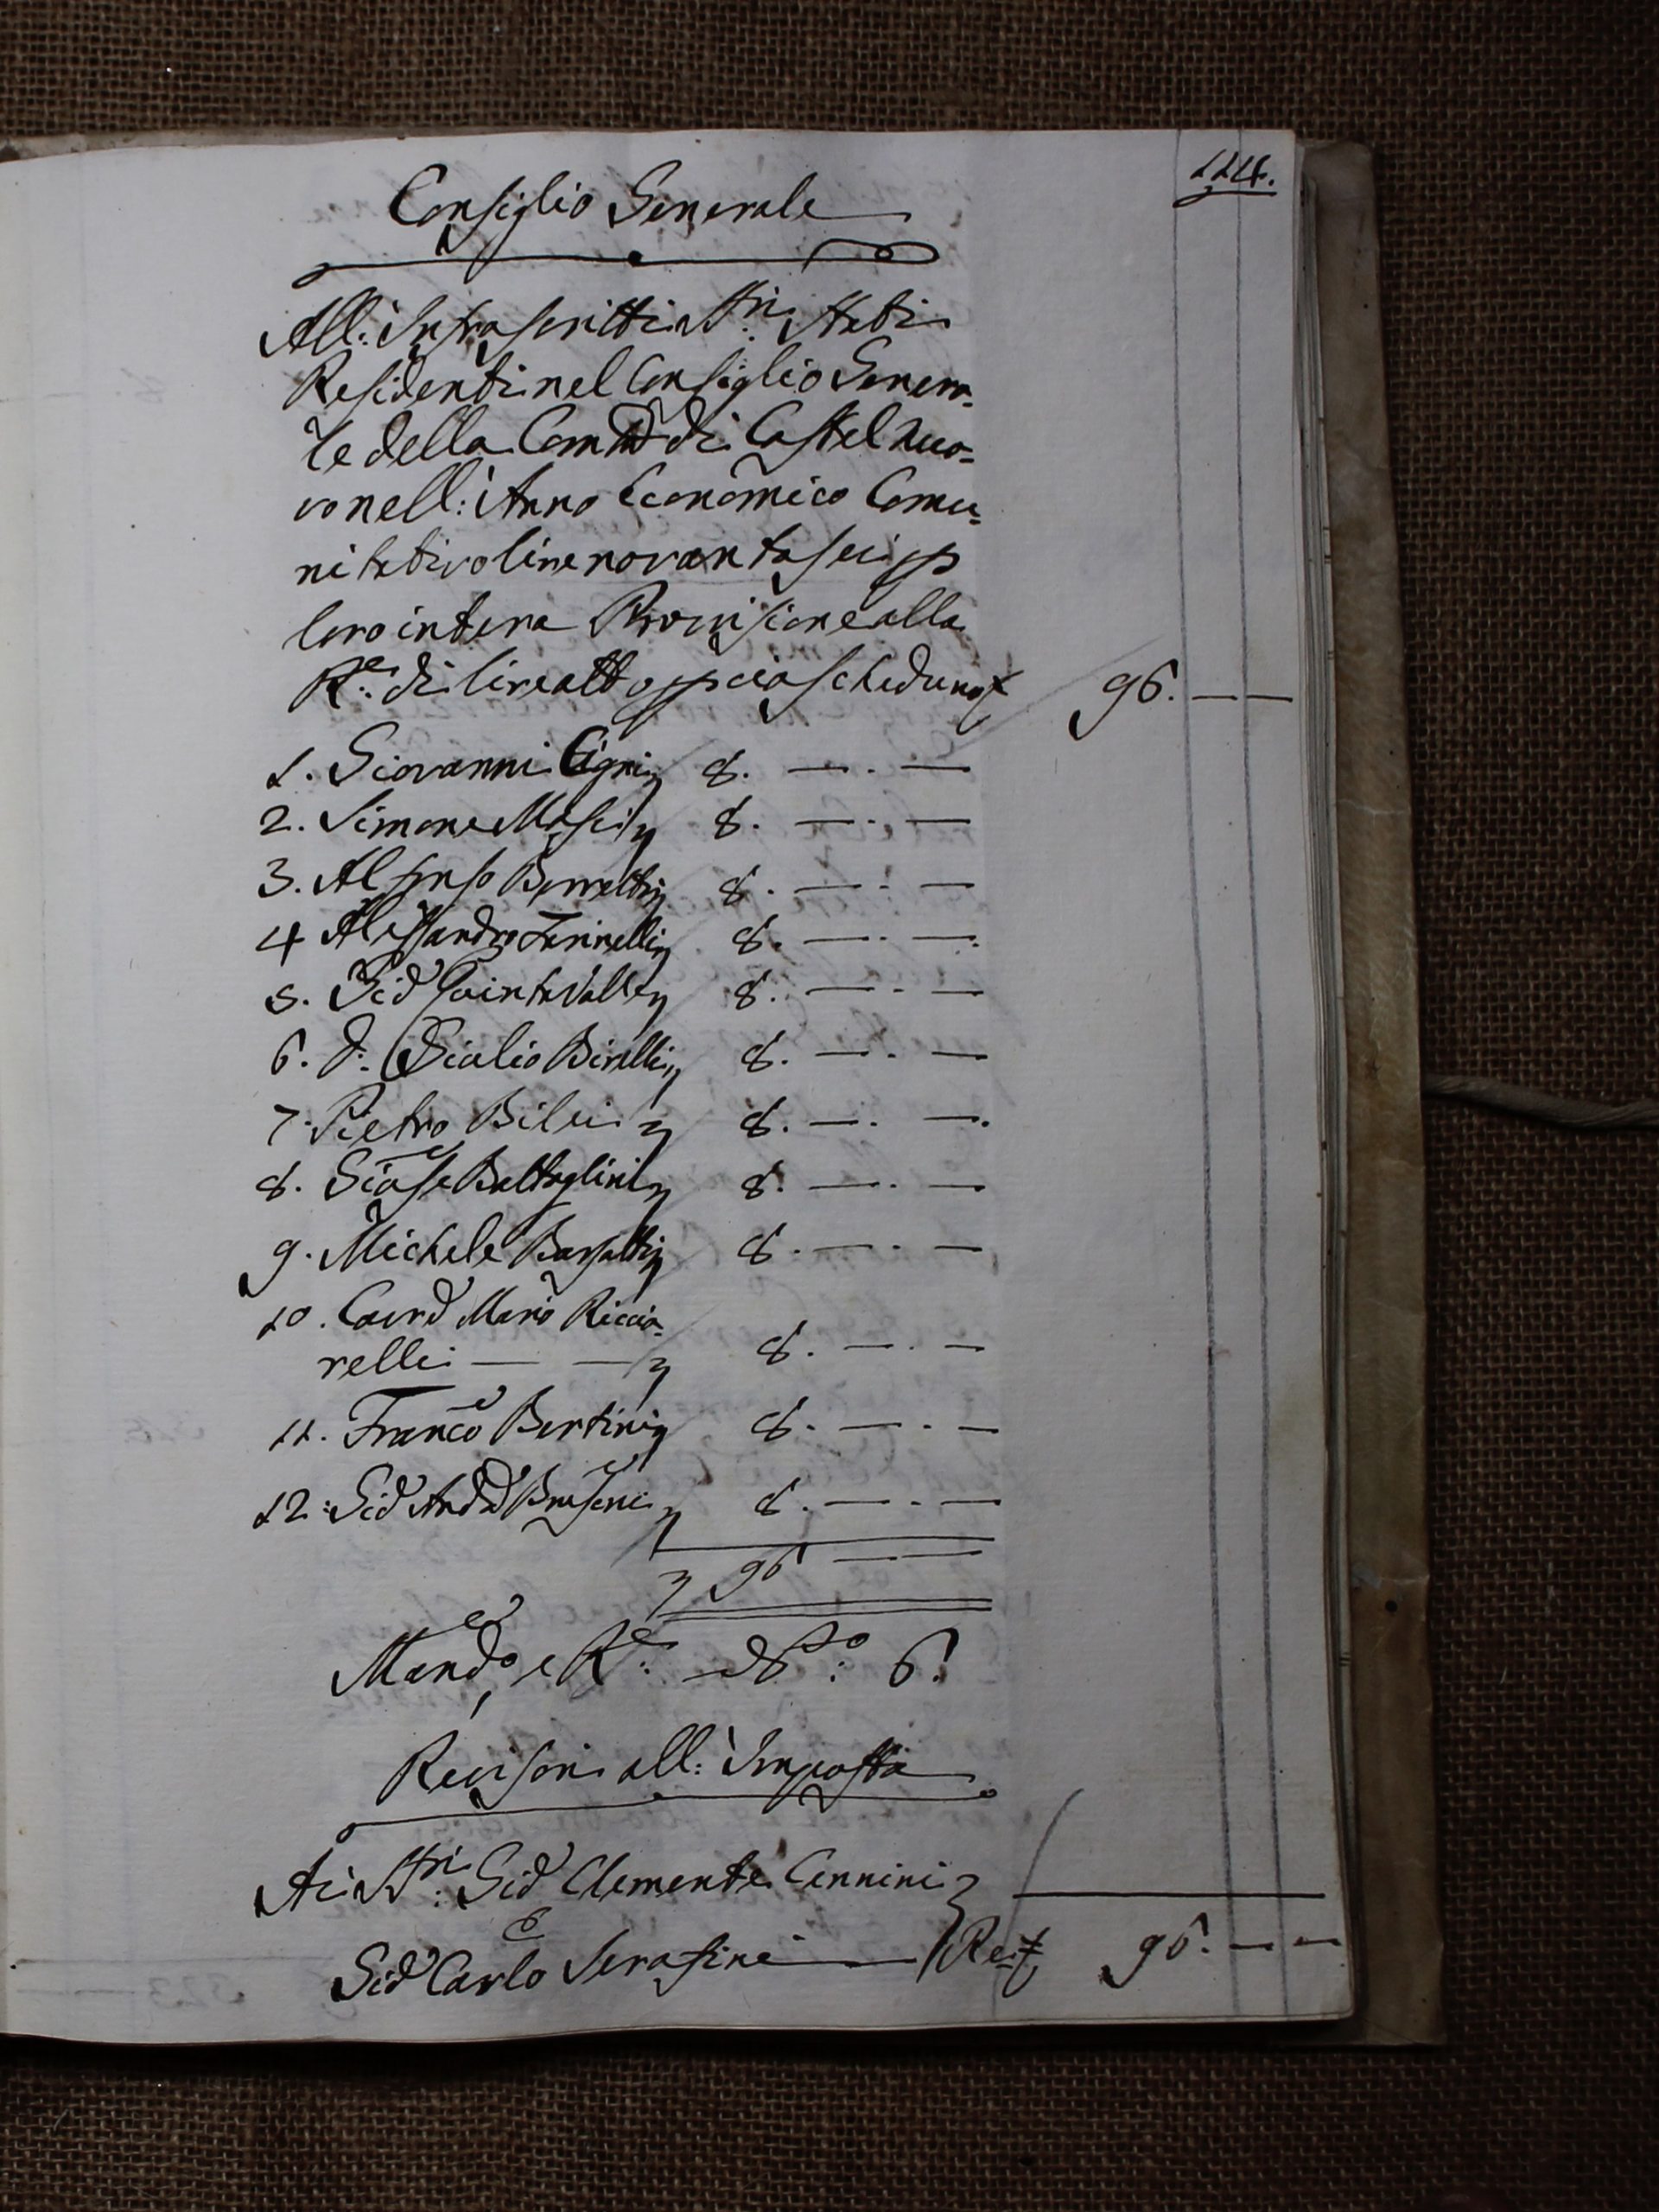 114.
Consiglio Generale
All: Infrascritti Stti
Residenti nel Consiglio Genera=
le della Comtà di Castel Nuo=
vo nell: Anno Economico Comu=
nitativo lire novantasei p
loro intera Provisione alla
Re: di lire otto p ciascheduno £ 96. — —
1. Giovanni Cigni 8. —. —
2. Simone Masi 8. —. —
3. Alfonso Berretti 8. —. —
4 Alessandro Ferinelli 8. —. —
5. Gio Quinta Valle 8. —. —
6. d. Giulio Birelli 8. —. —
7. Pietro Bilei 8. —. —.
8. Giuse Battaglini 8. —. —
9. Michele Bassotti 8. —. —
10. Mario Riccia=
relli — — 8. —. —
11. Franco Bertini 8. —. —
12: Gio And 8. —. —
96 — —
Mando, e Re: No: 6.
Revisori all: Imposta
Ai Stri: Gio Clemente Cennini
Gio Carlo Serafini — £ 96. — —